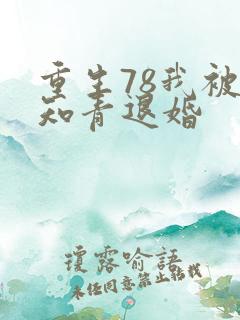 重生78我被
知青退婚
瓊露喻語
未经同意禁止转载